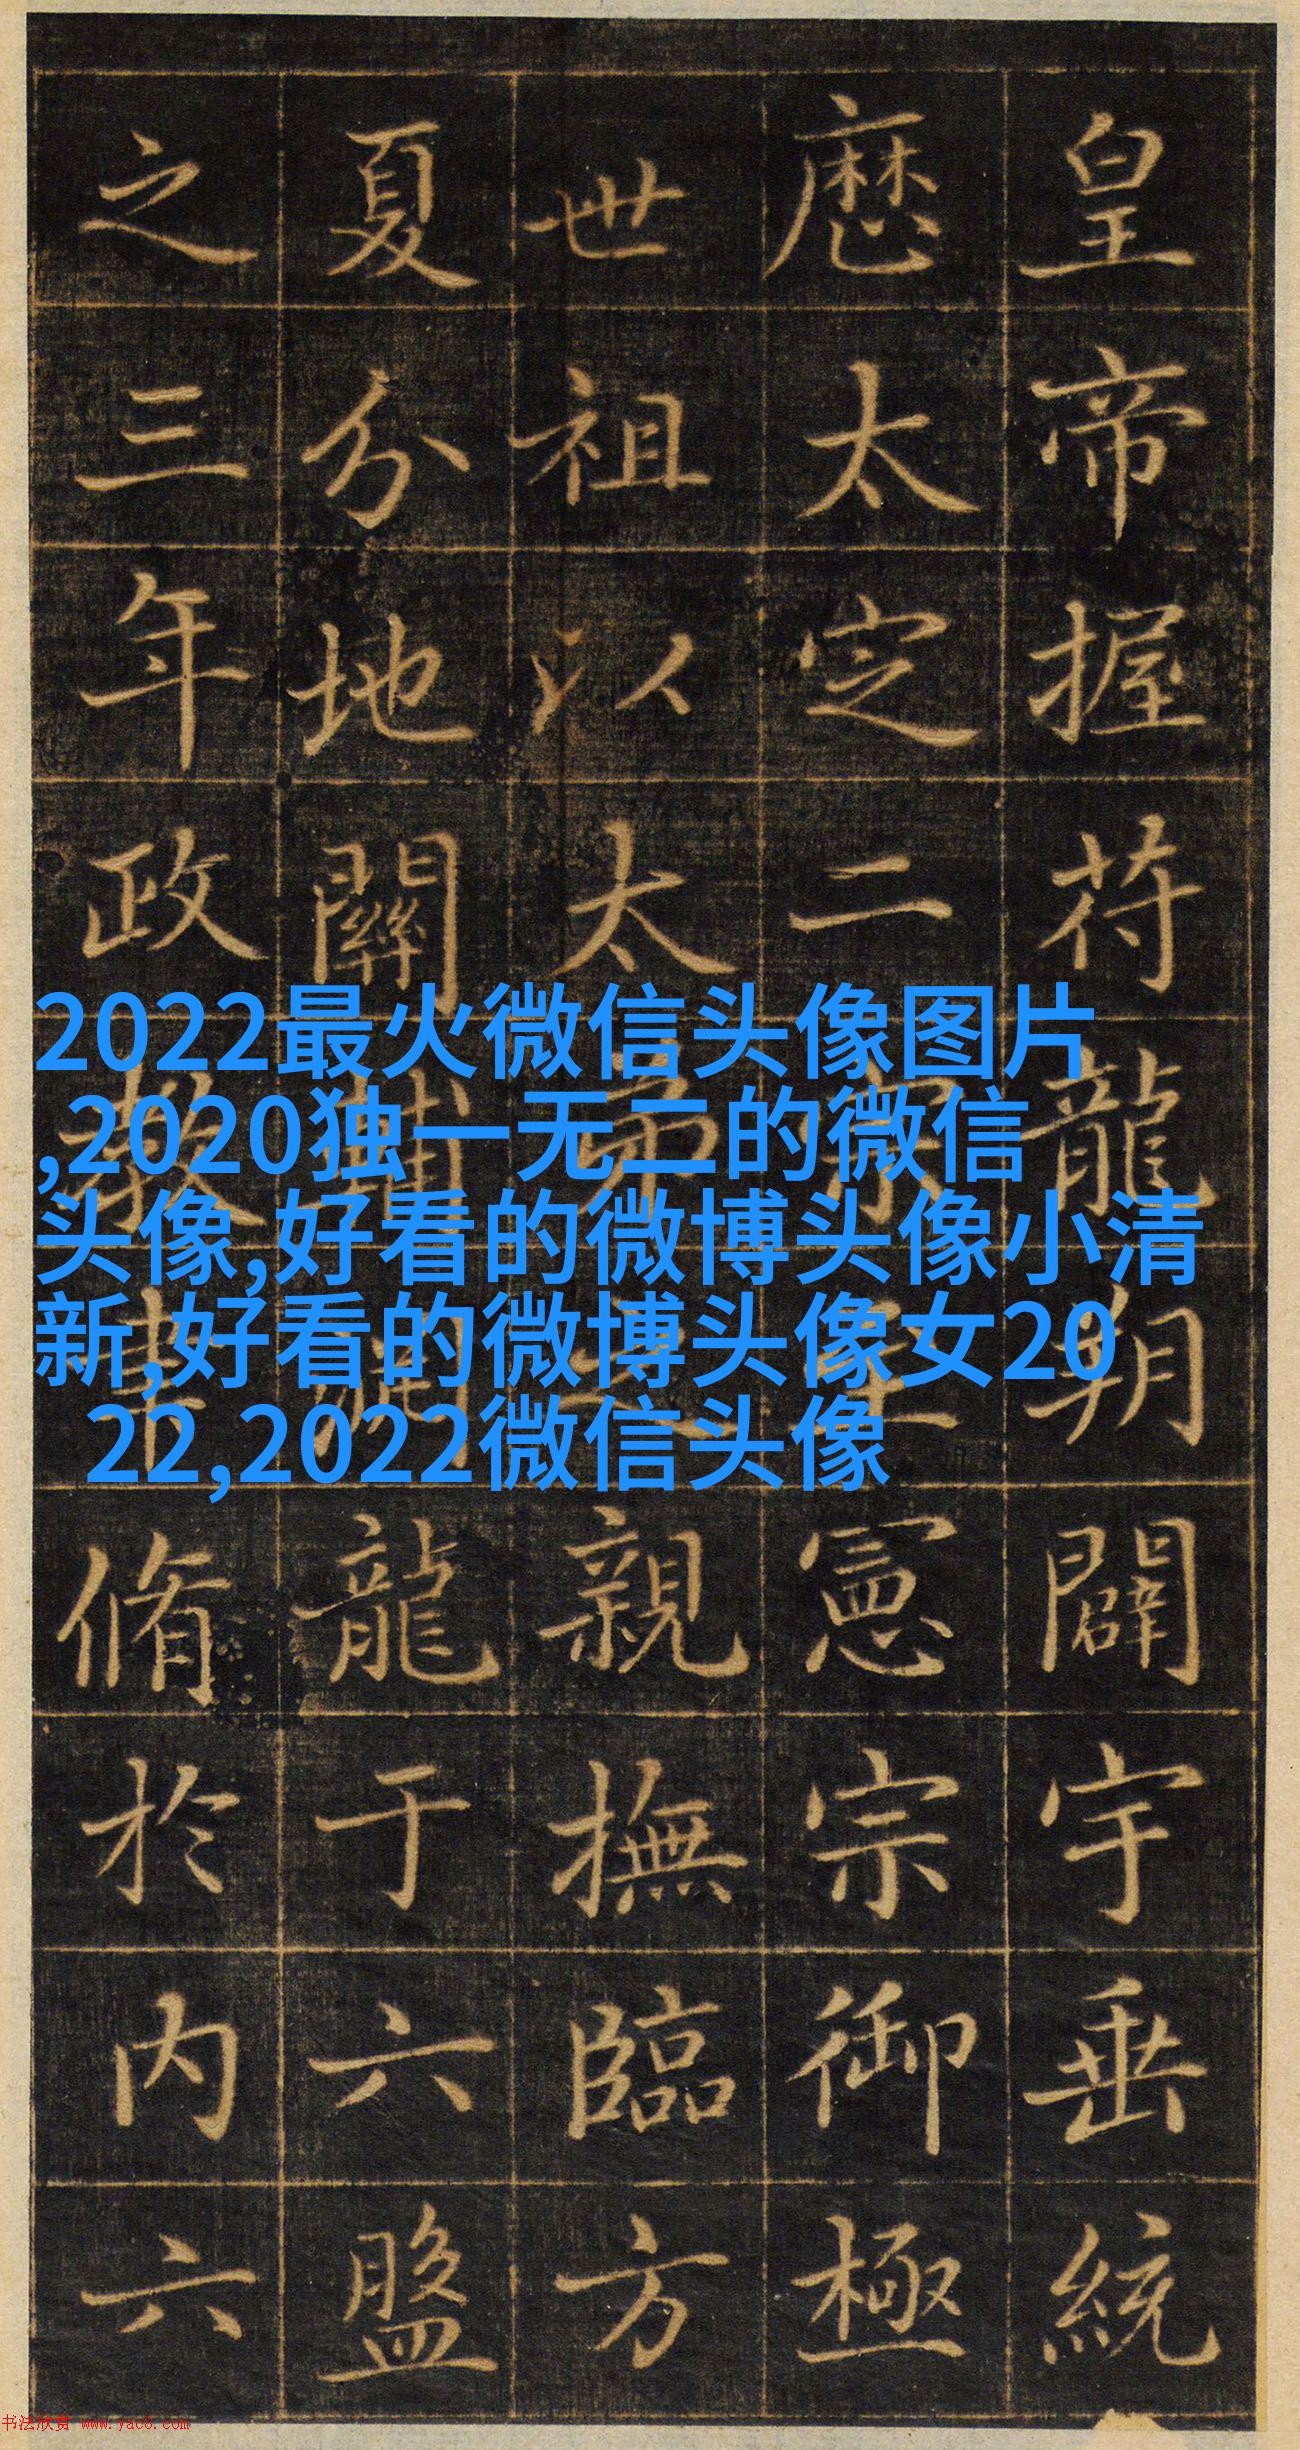 皇帝握苻龍朔闢宇垂統
厯太定二宗憲宗御極
世祖以太弟之親撫臨方
夏分地關輔龍于六盤
之三年政教脩於内六
2022最火微信头像图片
,2020独一无二的微信
头像,好看的微博头像小清
新,好看的微博头像女20
22,2022微信头像
书法欣赏 www.yac8.com